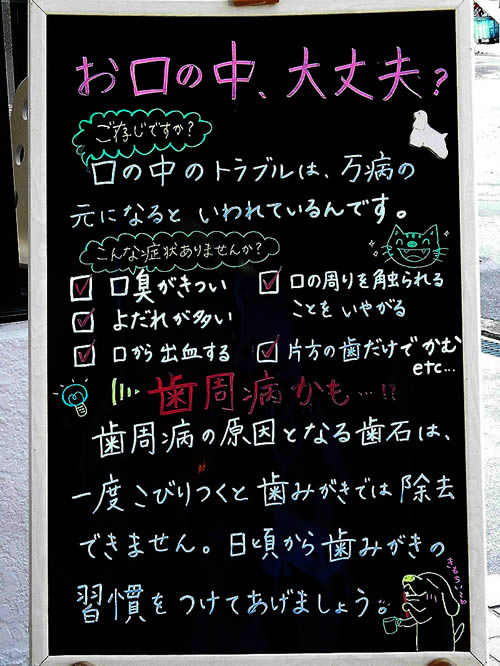 お口の中、大丈夫？
ご存じですか？
口の中のトラブルは、万病の
元になるといわれているんです。
こんな症状ありませんか？
口臭がきつい
よだれが多い
口から出血する
口の周りを触られる
ことをいやがる
片方の歯だけでかむ
etc…
歯周病かも…!?
歯周病の原因となる歯石は、
一度こびりつくと歯みがきでは除去
できません。日頃から歯みがきの
習慣をつけてあげましょう。
きもちい〜